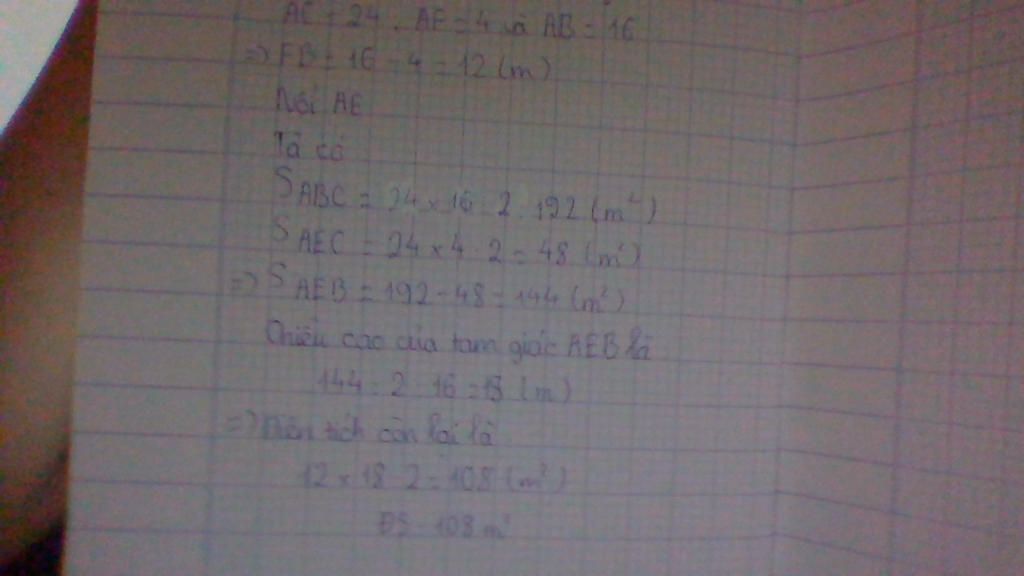 AC = 24 . AF = 4 và AB = 16
=> FB = 16 - 4 = 12 (m)
Nối AE
Ta có
S ABC = 24 x 16 : 2 = 192 (m²)
S AEC = 24 x 4 : 2 = 48 (m²)
=> S AEB = 192 - 48 = 144 (m²)
Chiều cao của tam giác AEB là
144 x 2 : 16 = 18 (m)
=> Diện tích còn lại là
12 x 18 : 2 = 108 (m²)
ĐS : 108 m²